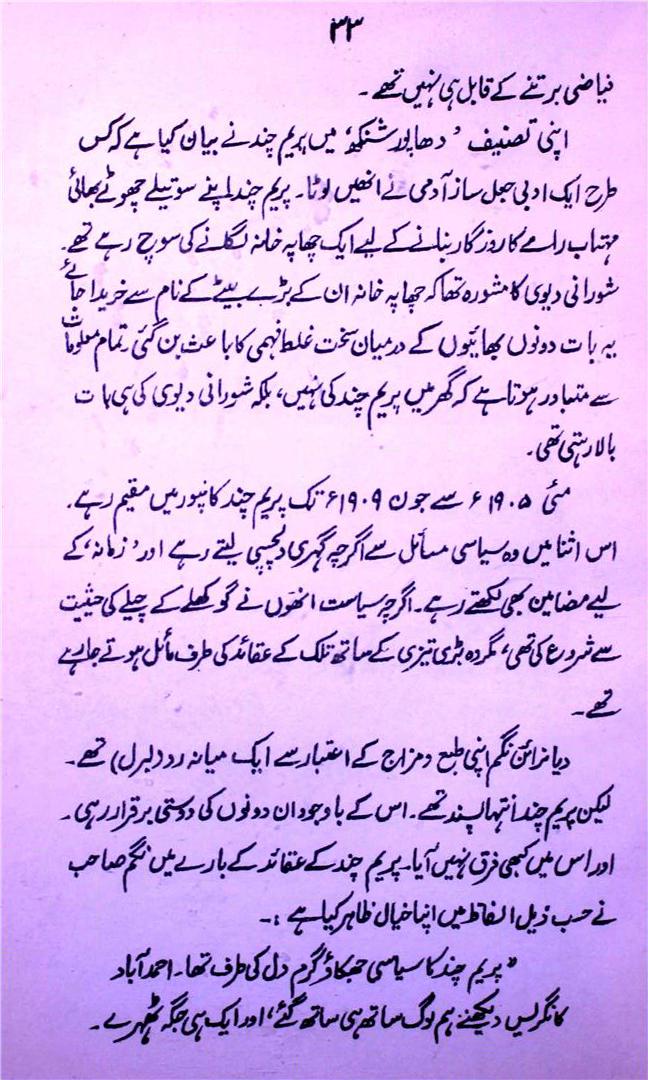 ۳۳
فیاضی برتنے کے قابل ہی نہیں تھے۔
اپنی تصنیف 'دھاپور شنکھ' میں پریم چند نے بیان کیا ہے کہ کس
طرح ایک ادبی جعل ساز آدمی نے انھیں لوٹا۔ پریم چند اپنے سوتیلے چھوٹے بھائی
مہتاب رائے کا روزگار بنانے کے لیے ایک چھاپہ خانہ لگانے کی سوچ رہے تھے۔
شورانی دیوی کا مشورہ تھا کہ چھاپہ خانہ ان کے بڑے بیٹے کے نام سے خریدا جائے
یہ بات دونوں بھائیوں کے درمیان سخت غلط فہمی کا باعث بن گئی۔ تمام معلومات
سے متبادر ہوتا ہے کہ گھر میں پریم چند کی نہیں، بلکہ شورانی دیوی کی ہی بات
بالا رہتی تھی۔
مئی ۱۹۰۵ء سے جون ۱۹۰۹ء تک پریم چند کانپور میں مقیم رہے۔
اس اثنا میں وہ سیاسی مسائل سے اگرچہ گہری دلچسپی لیتے رہے اور 'زمانہ' کے
لیے مضامین بھی لکھتے رہے۔ اگرچہ سیاست انھوں نے گوکھلے کے چیلے کی حیثیت
سے شروع کی تھی، مگر وہ بڑی تیزی کے ساتھ تلک کے عقائد کی طرف مائل ہوتے جا رہے
تھے۔
دیا نرائن نگم اپنی طبع و مزاج کے اعتبار سے ایک میانہ رو (لبرل) تھے۔
لیکن پریم چند انتہا پسند تھے۔ اس کے باوجود ان دونوں کی دوستی برقرار رہی۔
اور اس میں کبھی فرق نہیں آیا۔ پریم چند کے عقائد کے بارے میں نگم صاحب
نے حسب ذیل الفاظ میں اپنا خیال ظاہر کیا ہے :۔
"پریم چند کا سیاسی جھکاؤ گرم دل کی طرف تھا۔ احمد آباد
کانگریس دیکھنے ہم لوگ ساتھ ہی ساتھ گئے، اور ایک ہی جگہ ٹھہرے۔